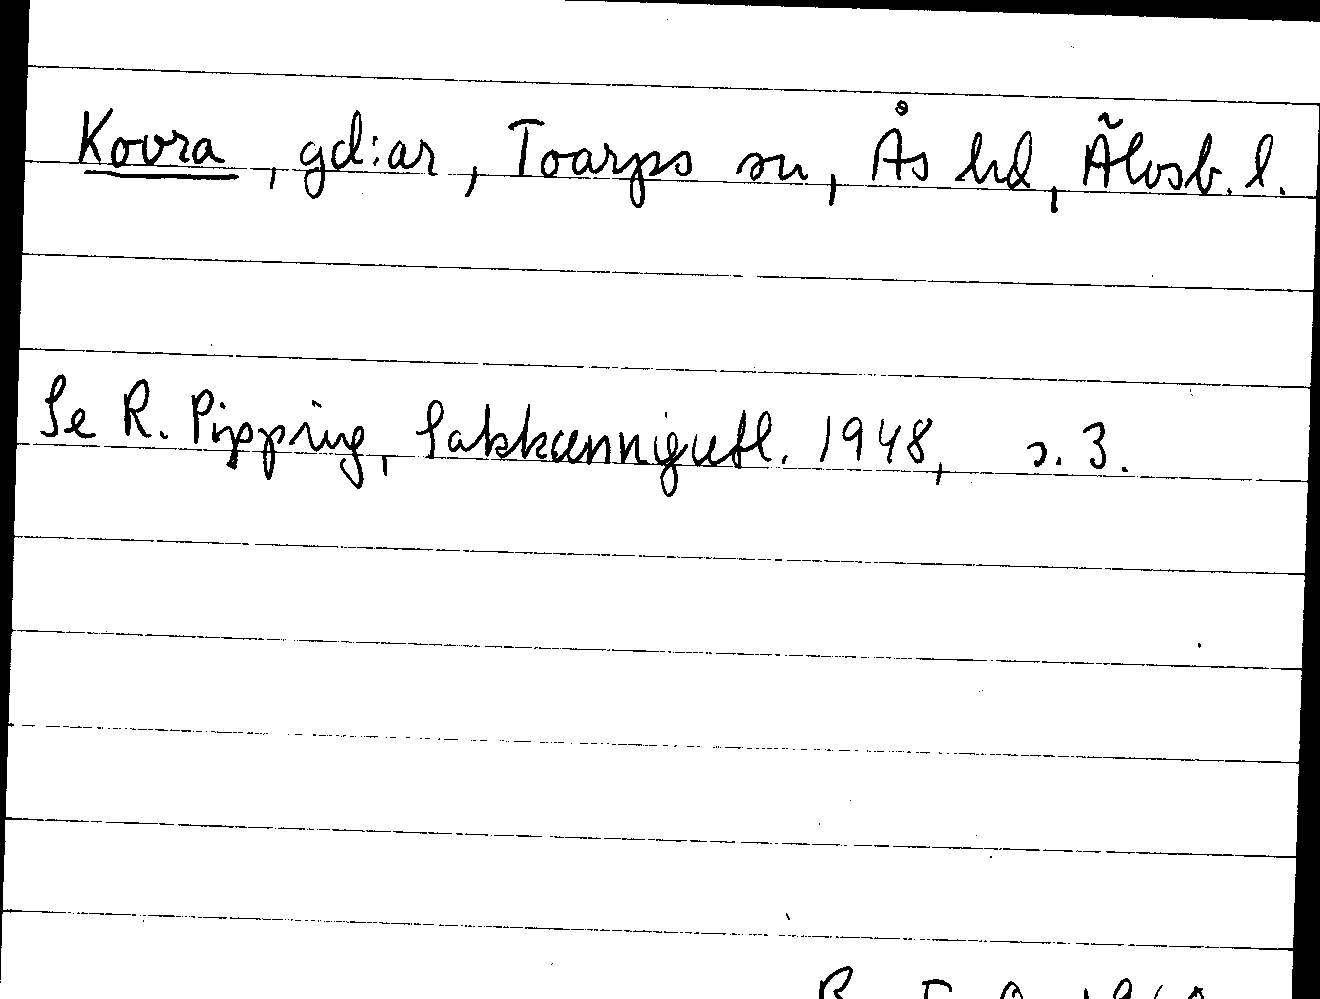 Kovra, gd:ar, Toarps sn, Ås hd, Älvsb. l.
Se R. Pipping, Sakkunnigutl. 1948, s. 3.